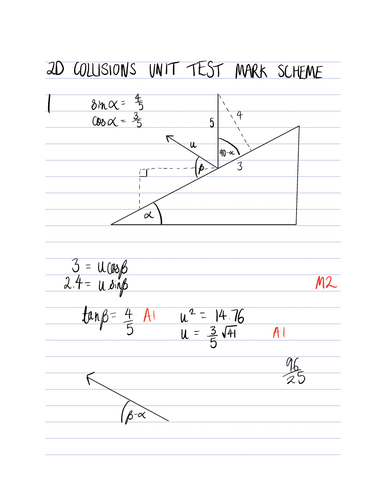 2D COLLISIONS UNIT TEST MARK SCHEME
1
sinα = 4/5
cosα = 3/5
5
4
u
90-α
β
3
α
3 = ucosβ
2.4 = usinβ
M2
tanβ = 4/5 A1
u² = 14.76
u = 3/5 √41 A1
96/25
β-α